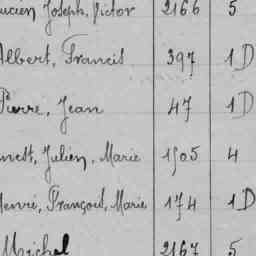 ucien Joseph, Victor 2166 5
Albert, Francis 397 1D
Pierre, Jean 47 1D
nest, Julien, Marie 1505 4
Henri, François, Marie 174 1D
Michel 2167 5